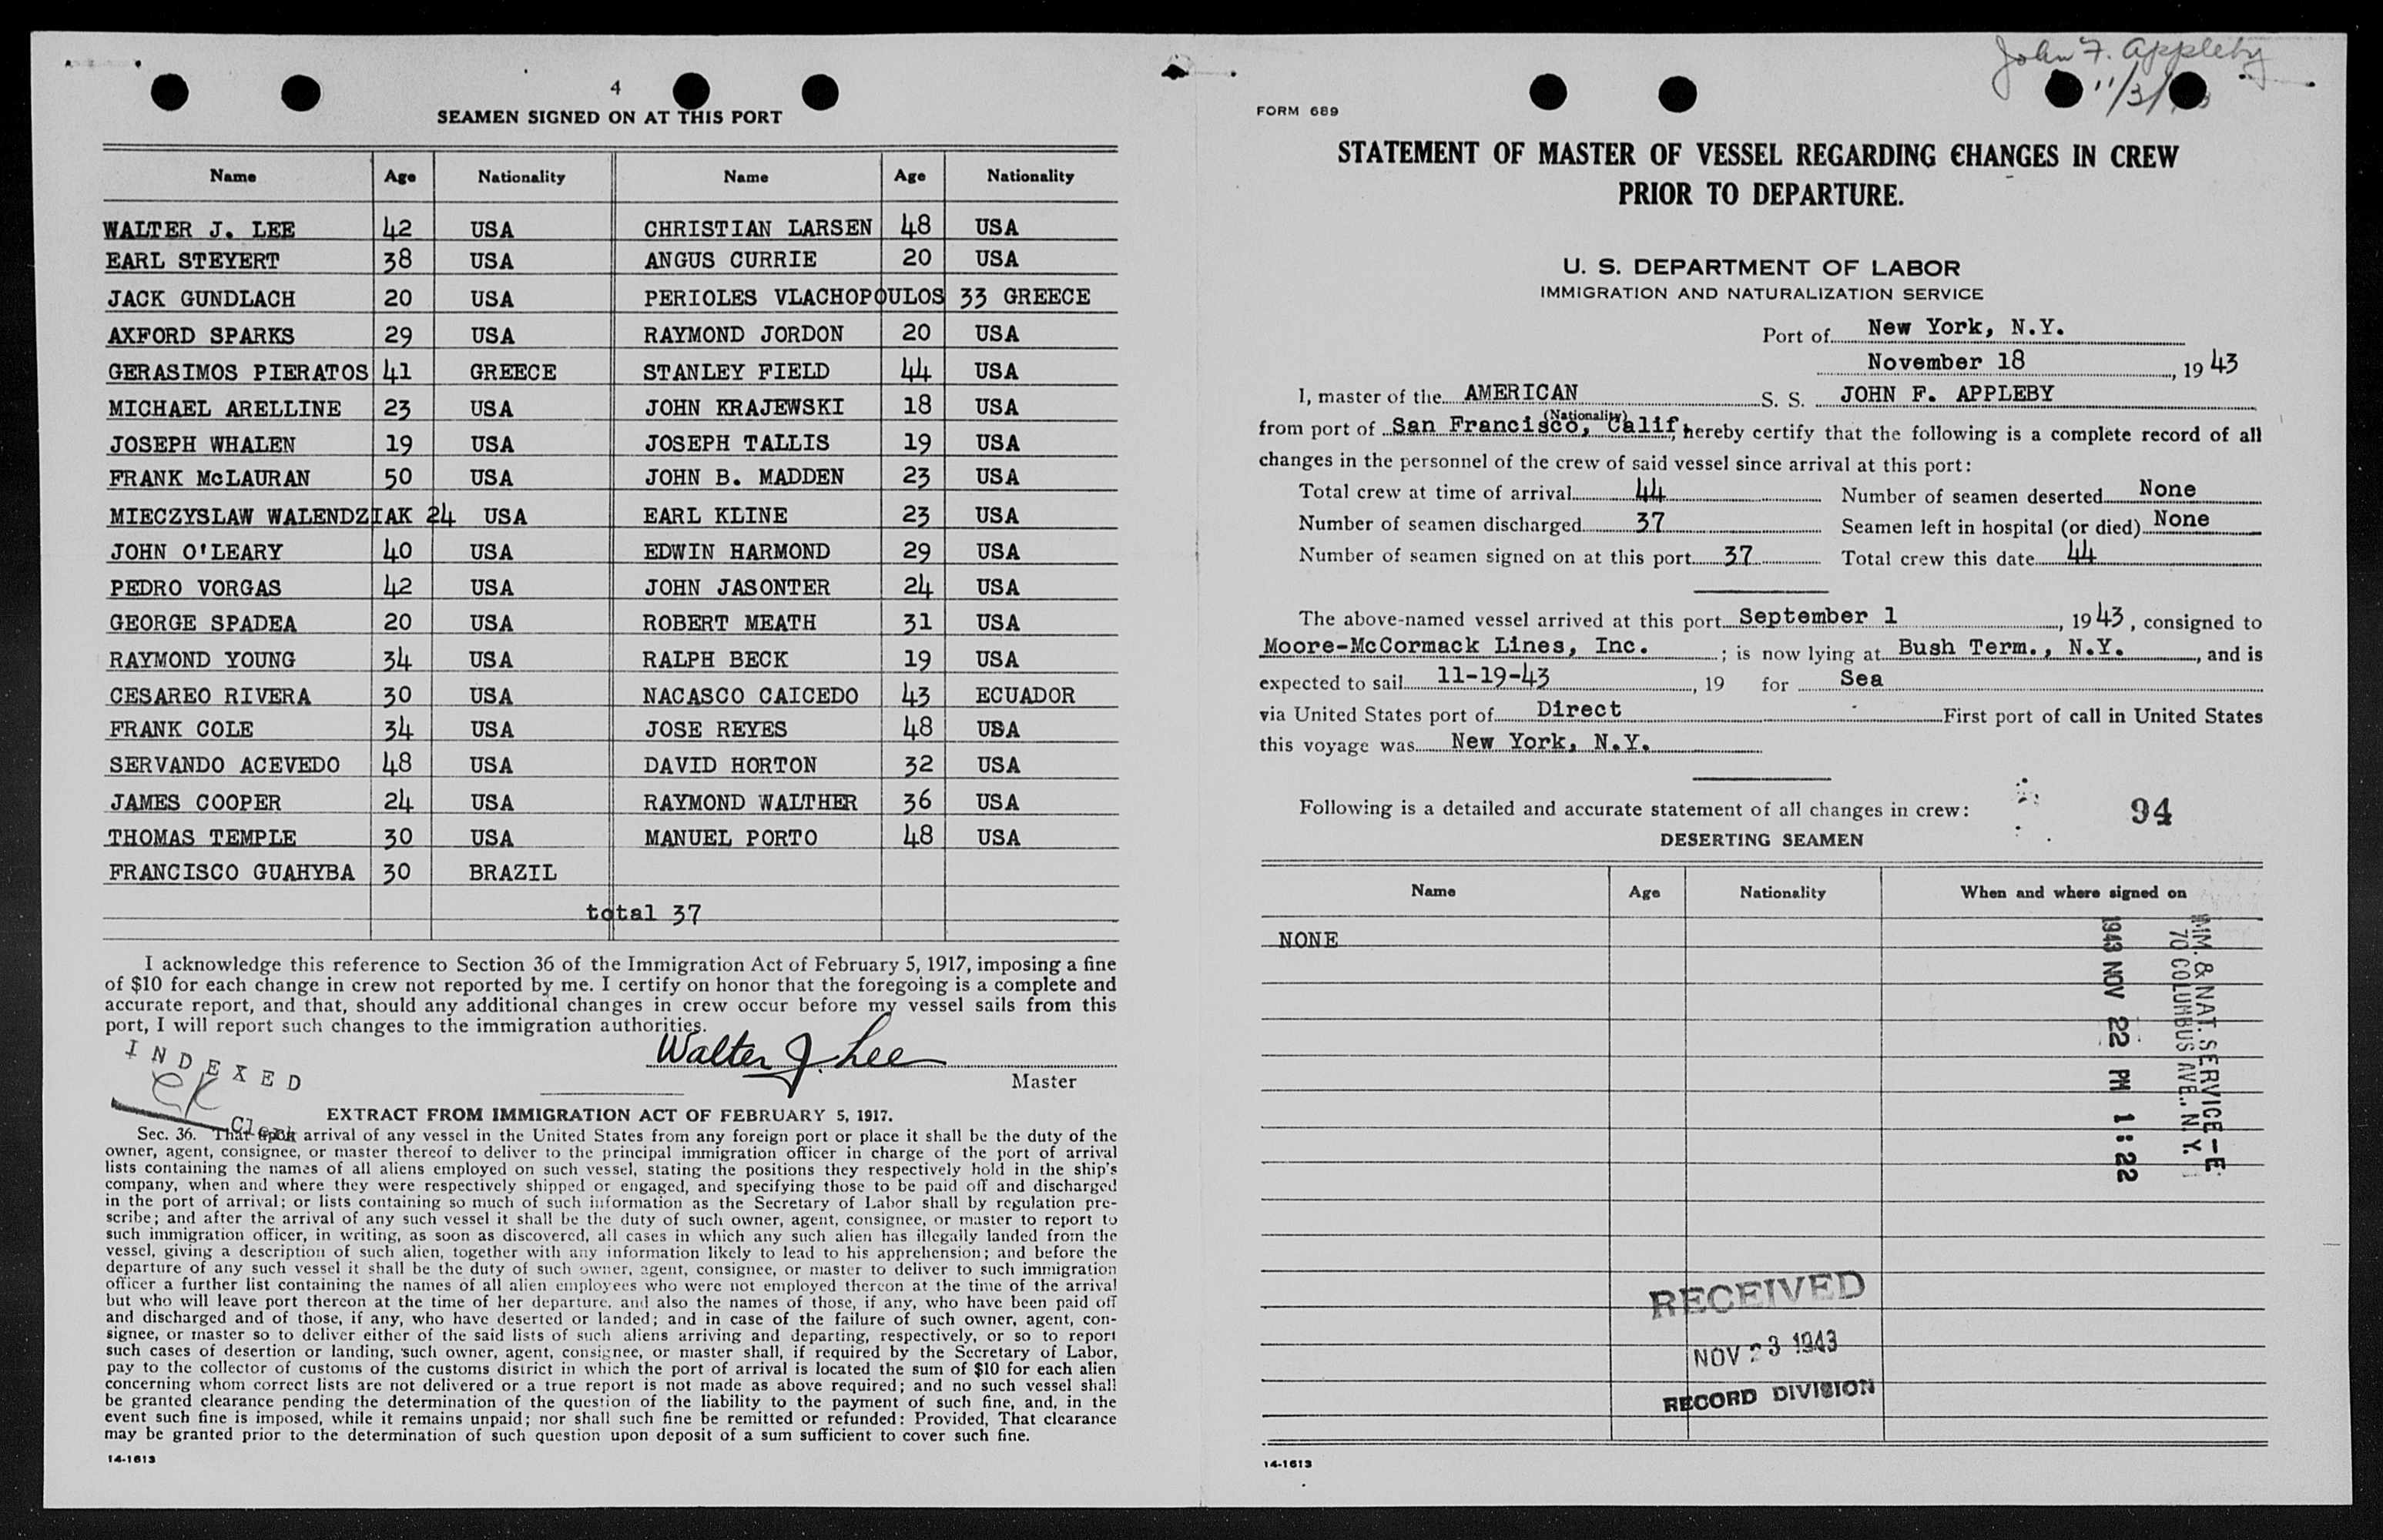 4
SEAMEN SIGNED ON AT THIS PORT
Name Age Nationality Name Age Nationality
WALTER J. LEE 42 USA CHRISTIAN LARSEN 48 USA
EARL STEYERT 38 USA ANGUS CURRIE 20 USA
JACK GUNDLACH 20 USA PERIOLES VLACHOPOULOS 33 GREECE
AXFORD SPARKS 29 USA RAYMOND JORDON 20 USA
GERASIMOS PIERATOS 41 GREECE STANLEY FIELD 44 USA
MICHAEL ARELLINE 23 USA JOHN KRAJEWSKI 18 USA
JOSEPH WHALEN 19 USA JOSEPH TALLIS 19 USA
FRANK McLAURAN 50 USA JOHN B. MADDEN 23 USA
MIECZYSLAW WALENDZIAK 24 USA EARL KLINE 23 USA
JOHN O'LEARY 40 USA EDWIN HARMOND 29 USA
PEDRO VORGAS 42 USA JOHN JASONTER 24 USA
GEORGE SPADEA 20 USA ROBERT MEATH 31 USA
RAYMOND YOUNG 34 USA RALPH BECK 19 USA
CESAREO RIVERA 30 USA NACASCO CAICEDO 43 ECUADOR
FRANK COLE 34 USA JOSE REYES 48 USA
SERVANDO ACEVEDO 48 USA DAVID HORTON 32 USA
JAMES COOPER 24 USA RAYMOND WALTHER 36 USA
THOMAS TEMPLE 30 USA MANUEL PORTO 48 USA
FRANCISCO GUAHYBA 30 BRAZIL
total 37
I acknowledge this reference to Section 36 of the Immigration Act of February 5, 1917, imposing a fine
of $10 for each change in crew not reported by me. I certify on honor that the foregoing is a complete and
accurate report, and that, should any additional changes in crew occur before my vessel sails from this
port, I will report such changes to the immigration authorities.
Walter J. Lee
Master
INDEXED
Clerk
EXTRACT FROM IMMIGRATION ACT OF FEBRUARY 5, 1917.
Sec. 36. That upon arrival of any vessel in the United States from any foreign port or place it shall be the duty of the
owner, agent, consignee, or master thereof to deliver to the principal immigration officer in charge of the port of arrival
lists containing the names of all aliens employed on such vessel, stating the positions they respectively hold in the ship's
company, when and where they were respectively shipped or engaged, and specifying those to be paid off and discharged
in the port of arrival; or lists containing so much of such information as the Secretary of Labor shall by regulation pre-
scribe; and after the arrival of any such vessel it shall be the duty of such owner, agent, consignee, or master to report to
such immigration officer, in writing, as soon as discovered, all cases in which any such alien has illegally landed from the
vessel, giving a description of such alien, together with any information likely to lead to his apprehension; and before the
departure of any such vessel it shall be the duty of such owner, agent, consignee, or master to deliver to such immigration
officer a further list containing the names of all alien employees who were not employed thereon at the time of the arrival
but who will leave port thereon at the time of her departure, and also the names of those, if any, who have been paid off
and discharged and of those, if any, who have deserted or landed; and in case of the failure of such owner, agent, con-
signee, or master so to deliver either of the said lists of such aliens arriving and departing, respectively, or so to report
such cases of desertion or landing, such owner, agent, consignee, or master shall, if required by the Secretary of Labor,
pay to the collector of customs of the customs district in which the port of arrival is located the sum of $10 for each alien
concerning whom correct lists are not delivered or a true report is not made as above required; and no such vessel shall
be granted clearance pending the determination of the question of the liability to the payment of such fine, and, in the
event such fine is imposed, while it remains unpaid; nor shall such fine be remitted or refunded: Provided, That clearance
may be granted prior to the determination of such question upon deposit of a sum sufficient to cover such fine.
14-1613
John F. Appleby
11/3/
FORM 689
STATEMENT OF MASTER OF VESSEL REGARDING CHANGES IN CREW
PRIOR TO DEPARTURE.
U. S. DEPARTMENT OF LABOR
IMMIGRATION AND NATURALIZATION SERVICE
Port of New York, N.Y.
November 18, 1943
I, master of the AMERICAN S. S. JOHN F. APPLEBY
(Nationality)
from port of San Francisco, Calif, hereby certify that the following is a complete record of all
changes in the personnel of the crew of said vessel since arrival at this port:
Total crew at time of arrival 44 Number of seamen deserted None
Number of seamen discharged 37 Seamen left in hospital (or died) None
Number of seamen signed on at this port 37 Total crew this date 44
The above-named vessel arrived at this port September 1, 1943, consigned to
Moore-McCormack Lines, Inc.; is now lying at Bush Term., N.Y., and is
expected to sail 11-19-43, 19 for Sea
via United States port of Direct First port of call in United States
this voyage was New York, N.Y.
Following is a detailed and accurate statement of all changes in crew: 94
DESERTING SEAMEN
Name Age Nationality When and where signed on
NONE
IMM. & NAT. SERVICE-E
70 COLUMBUS AVE., N.Y.
1943 NOV 22 PM 1:22
RECEIVED
NOV 23 1943
RECORD DIVISION
14-1613